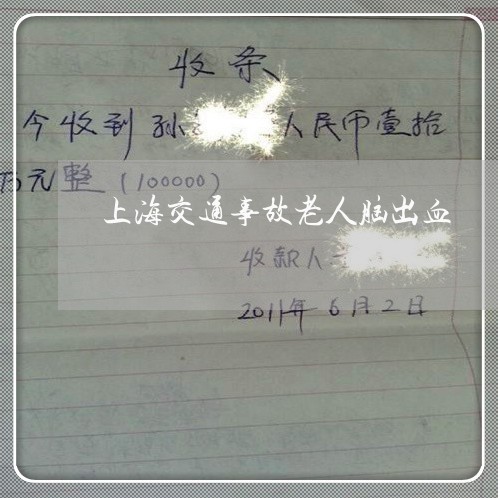 收条
今收到孙 人民币壹拾
万元整(100000)
上海交通事故老人脑出血
收款人
2011年6月2日